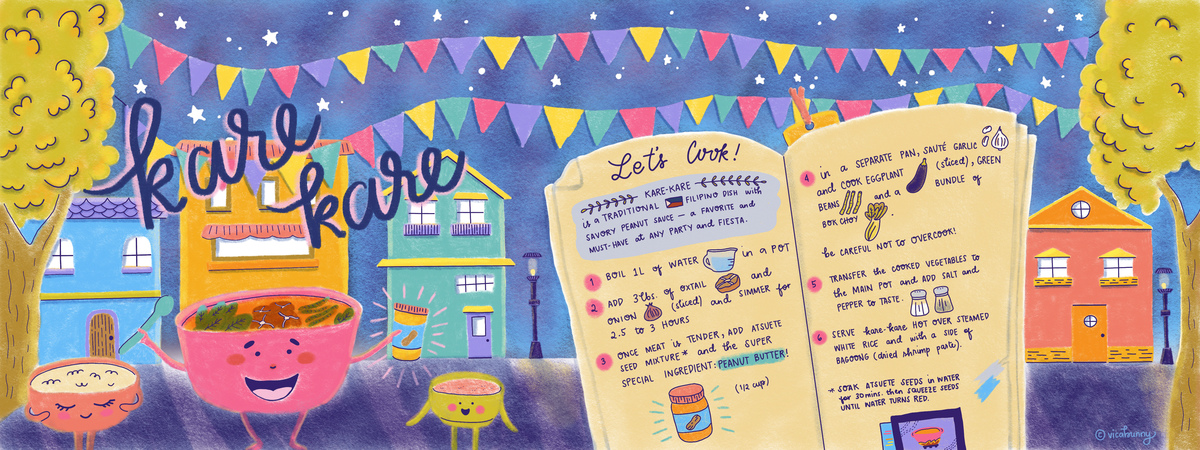 kare
kare
Let's Cook!
KARE-KARE
is a TRADITIONAL FILIPINO DISH with
SAVORY PEANUT SAUCE – A FAVORITE and
MUST-HAVE at ANY PARTY and FIESTA.
1 BOIL 1L of WATER in a POT
2 ADD 3 lbs. of OXTAIL and
ONION (sliced) and SIMMER for
2.5 to 3 HOURS
3 ONCE MEAT is TENDER, ADD ATSUETE
SEED MIXTURE* and the SUPER
SPECIAL INGREDIENT: PEANUT BUTTER!
(1/2 cup)
4 in a SEPARATE PAN, SAUTÉ GARLIC
and COOK EGGPLANT (sliced), GREEN
BEANS and a BUNDLE of
BOK CHOY.
be CAREFUL NOT to OVERCOOK!
5 TRANSFER the COOKED VEGETABLES to
the MAIN POT and ADD SALT and
PEPPER to TASTE.
6 SERVE kare-kare HOT OVER STEAMED
WHITE RICE and with a SIDE of
BAGOONG (dried shrimp paste).
* SOAK ATSUETE SEEDS in WATER
for 30 mins. then SQUEEZE SEEDS
UNTIL WATER TURNS RED.
© vicabunny